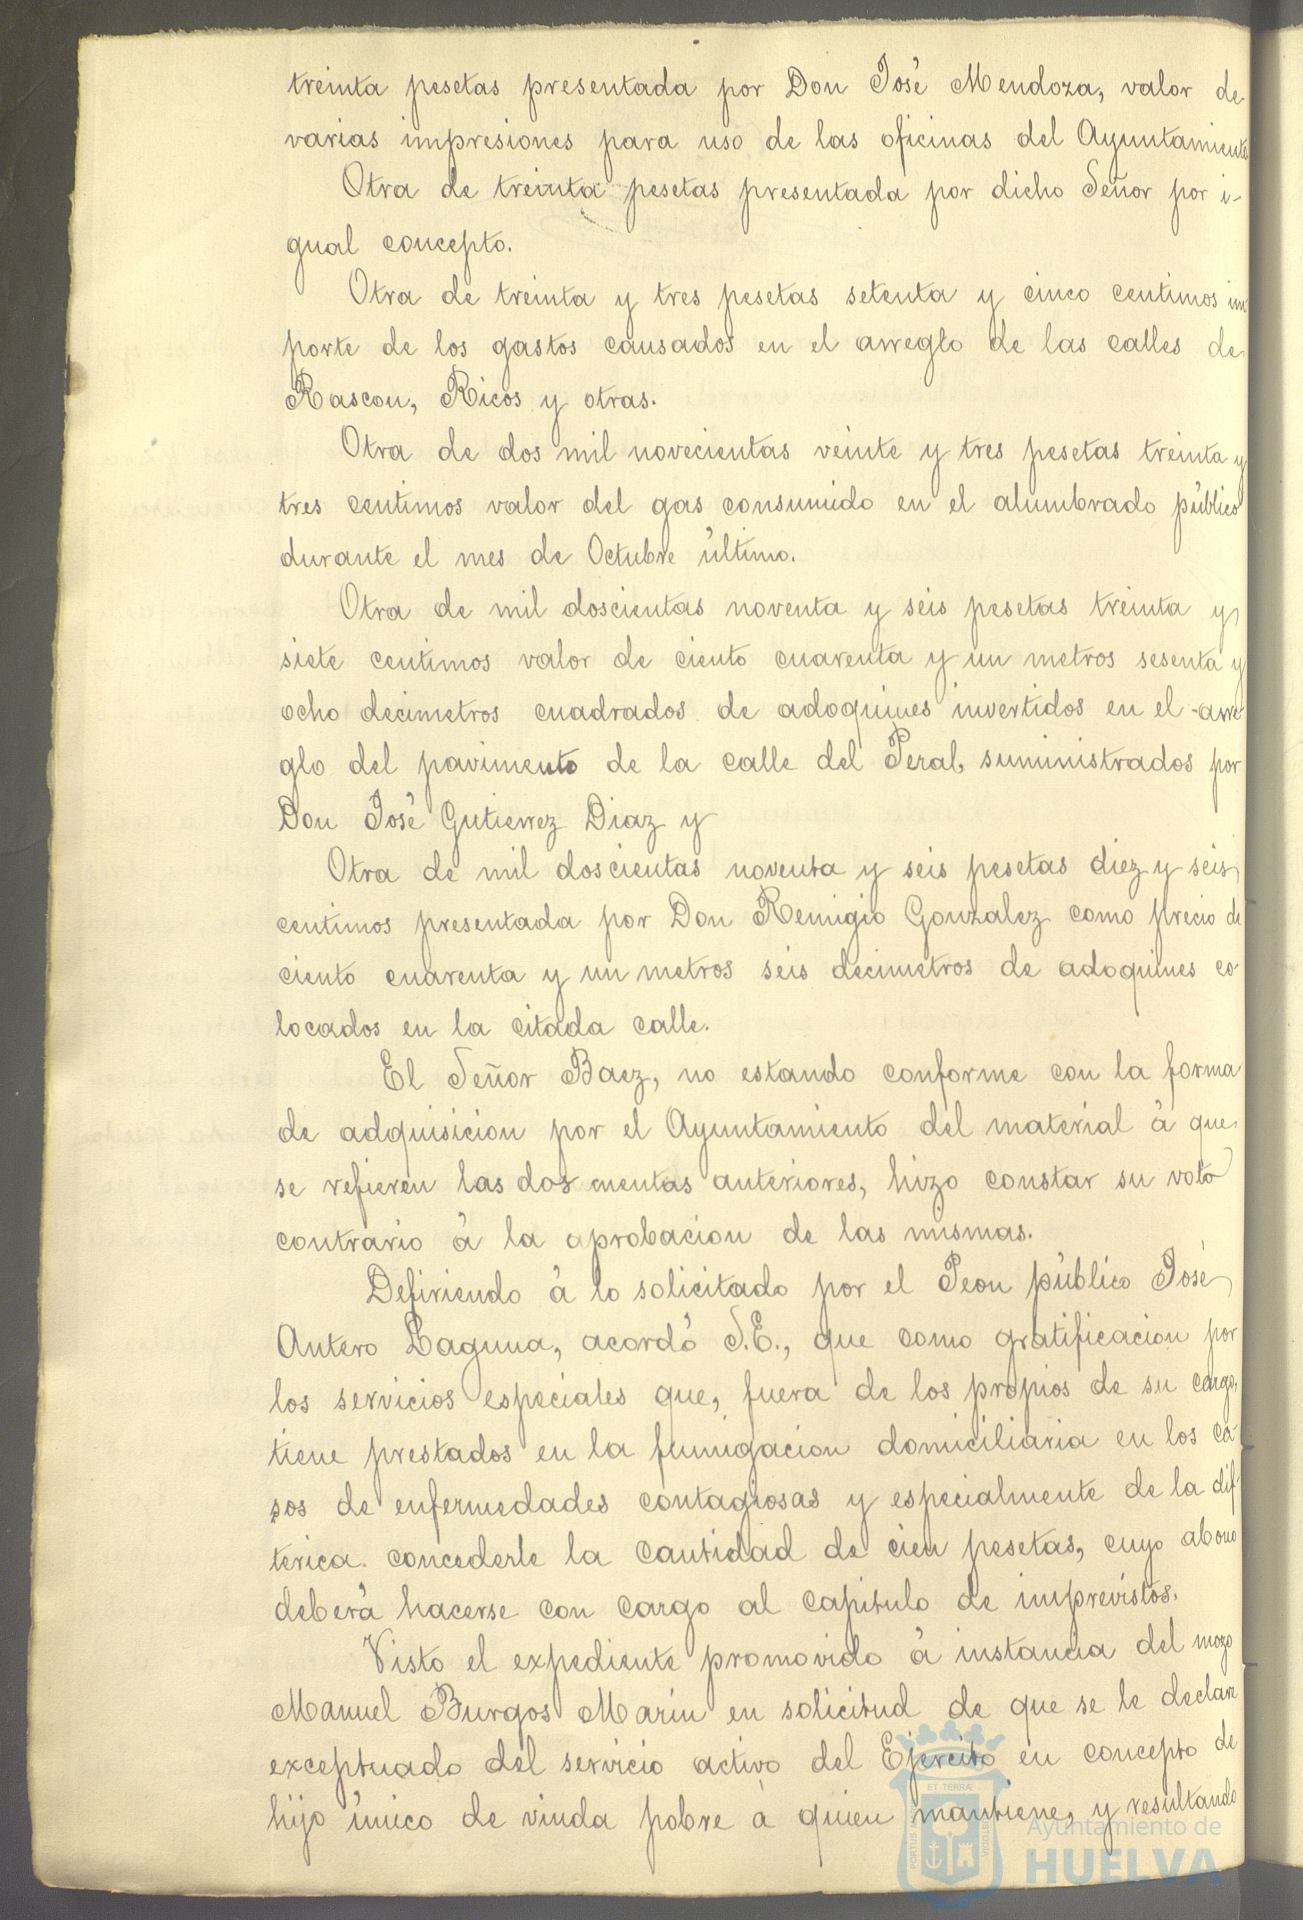 treinta pesetas presentada por Don José Mendoza, valor de
varias impresiones para uso de las oficinas del Ayuntamiento
Otra de treinta pesetas presentada por dicho Señor por i-
gual concepto.
Otra de treinta y tres pesetas setenta y cinco centimos im
porte de los gastos causados en el arreglo de las calles de
Rascon, Ricos y otras.
Otra de dos mil novecientas veinte y tres pesetas treinta y
tres centimos valor del gas consumido en el alumbrado público
durante el mes de Octubre último.
Otra de mil doscientas noventa y seis pesetas treinta y
siete centimos valor de ciento cuarenta y un metros sesenta y
ocho decimetros cuadrados de adoquines invertidos en el arre
glo del pavimento de la calle del Peral, suministrados por
Don José Gutierrez Diaz y
Otra de mil doscientas noventa y seis pesetas diez y seis
centimos presentada por Don Remigio Gonzalez como precio de
ciento cuarenta y un metros seis decimetros de adoquines co
locados en la citada calle.
El Señor Baez, no estando conforme con la forma
de adquisicion por el Ayuntamiento del material á que
se refieren las dos cuentas anteriores, hizo constar su voto
contrario á la aprobacion de las mismas.
Defiriendo á lo solicitado por el Peon público José
Antero Laguna, acordó S.E., que como gratificacion por
los servicios especiales que, fuera de los propios de su cargo,
tiene prestados en la fumigacion domiciliaria en los ca-
sos de enfermedades contagiosas y especialmente de la dif-
terica. concederle la cantidad de cien pesetas, cuyo abono
deberá hacerse con cargo al capitulo de imprevistos.
Visto el expediente promovido á instancia del mozo
Manuel Burgos Marin en solicitud de que se le declare
exceptuado del servicio activo del Ejercito en concepto de
hijo único de viuda pobre á quien mantiene, y resultando
Ayuntamiento de
HUELVA